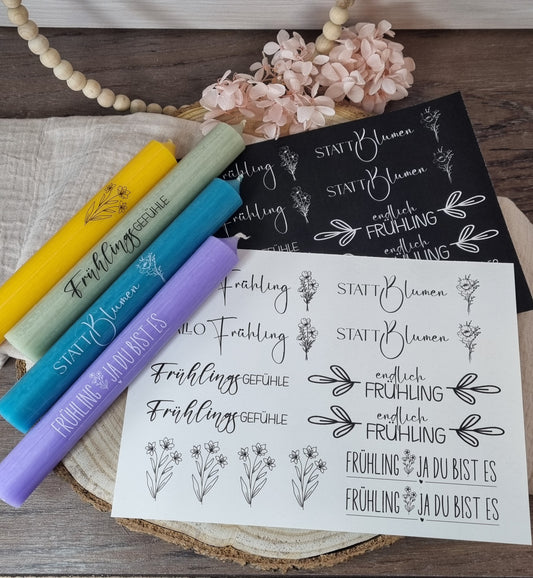 FrühlingsGEFÜHLE
STATT Blumen
FRÜHLING JA DU BIST ES
Frühling
STATT Blumen
Frühling
STATT Blumen
endlich
FRÜHLING
endlich
FRÜHLING
GEFÜHLE
Frühling
STATT Blumen
HALLO Frühling
STATT Blumen
FrühlingsGEFÜHLE
endlich
FRÜHLING
FrühlingsGEFÜHLE
endlich
FRÜHLING
FRÜHLING JA DU BIST ES
FRÜHLING JA DU BIST ES